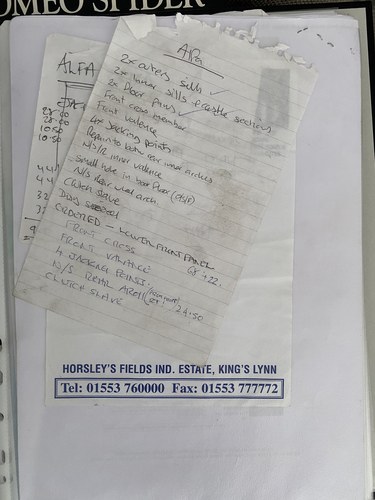 OMEO SPIDER
ALFA
JACK
10.50
10.50
Alfa
2x outer sills ✓
2x inner sills + castle sections
2x floor pans ✓
Front cross member
Front valence
4x jacking points
Repair to both rear inner arches
N/S/R inner valence
Small hole in boot floor (O/S/R)
N/S rear wheel arch
Clutch slave
DOOR
ORDERED - LOWER FRONT PANEL
FRONT CROSS
FRONT VALANCE
4 JACKING POINTS
N/S REAR ARCH
24.50
CLUTCH SLAVE
HORSLEY'S FIELDS IND. ESTATE, KING'S LYNN
Tel: 01553 760000 Fax: 01553 777772